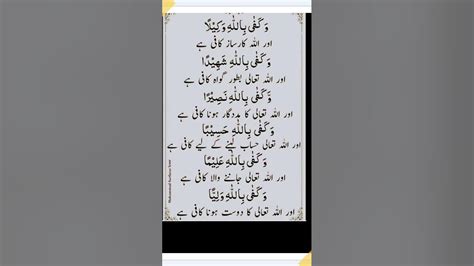 وَكَفٰى بِاللّٰهِ وَكِيْلًا
اور اللہ کارساز کافی ہے
وَكَفٰى بِاللّٰهِ شَهِيْدًا
اور اللہ تعالی بطور گواہ کافی ہے
وَّكَفٰى بِاللّٰهِ نَصِيْرًا
اور اللہ تعالی کا مددگار ہونا کافی ہے
وَكَفٰى بِاللّٰهِ حَسِيْبًا
اور اللہ تعالی حساب لینے کے لیے کافی ہے
وَكَفٰى بِاللّٰهِ عَلِيْمًا
اور اللہ تعالی جاننے والا کافی ہے
وَكَفٰى بِاللّٰهِ وَلِيًّا
اور اللہ تعالی کا دوست ہونا کافی ہے